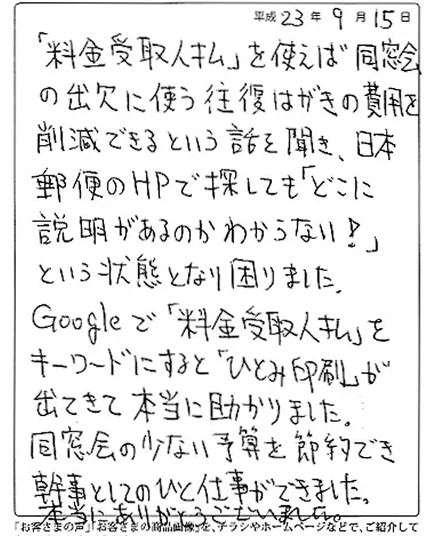 平成23年9月15日
「料金受取人払」を使えば同窓会
の出欠に使う往復はがきの費用を
削減できるという話を聞き、日本
郵便のHPで探しても「どこに
説明があるのかわからない!」
という状態となり困りました。
Googleで「料金受取人払」を
キーワードにすると「ひとみ印刷」が
出てきて本当に助かりました。
同窓会の少ない予算を節約でき
幹事としてのひと仕事ができました。
本当にありがとうございました。
「お客さまの声」「お客さまの商品画像」を、チラシやホームページなどで、ご紹介して